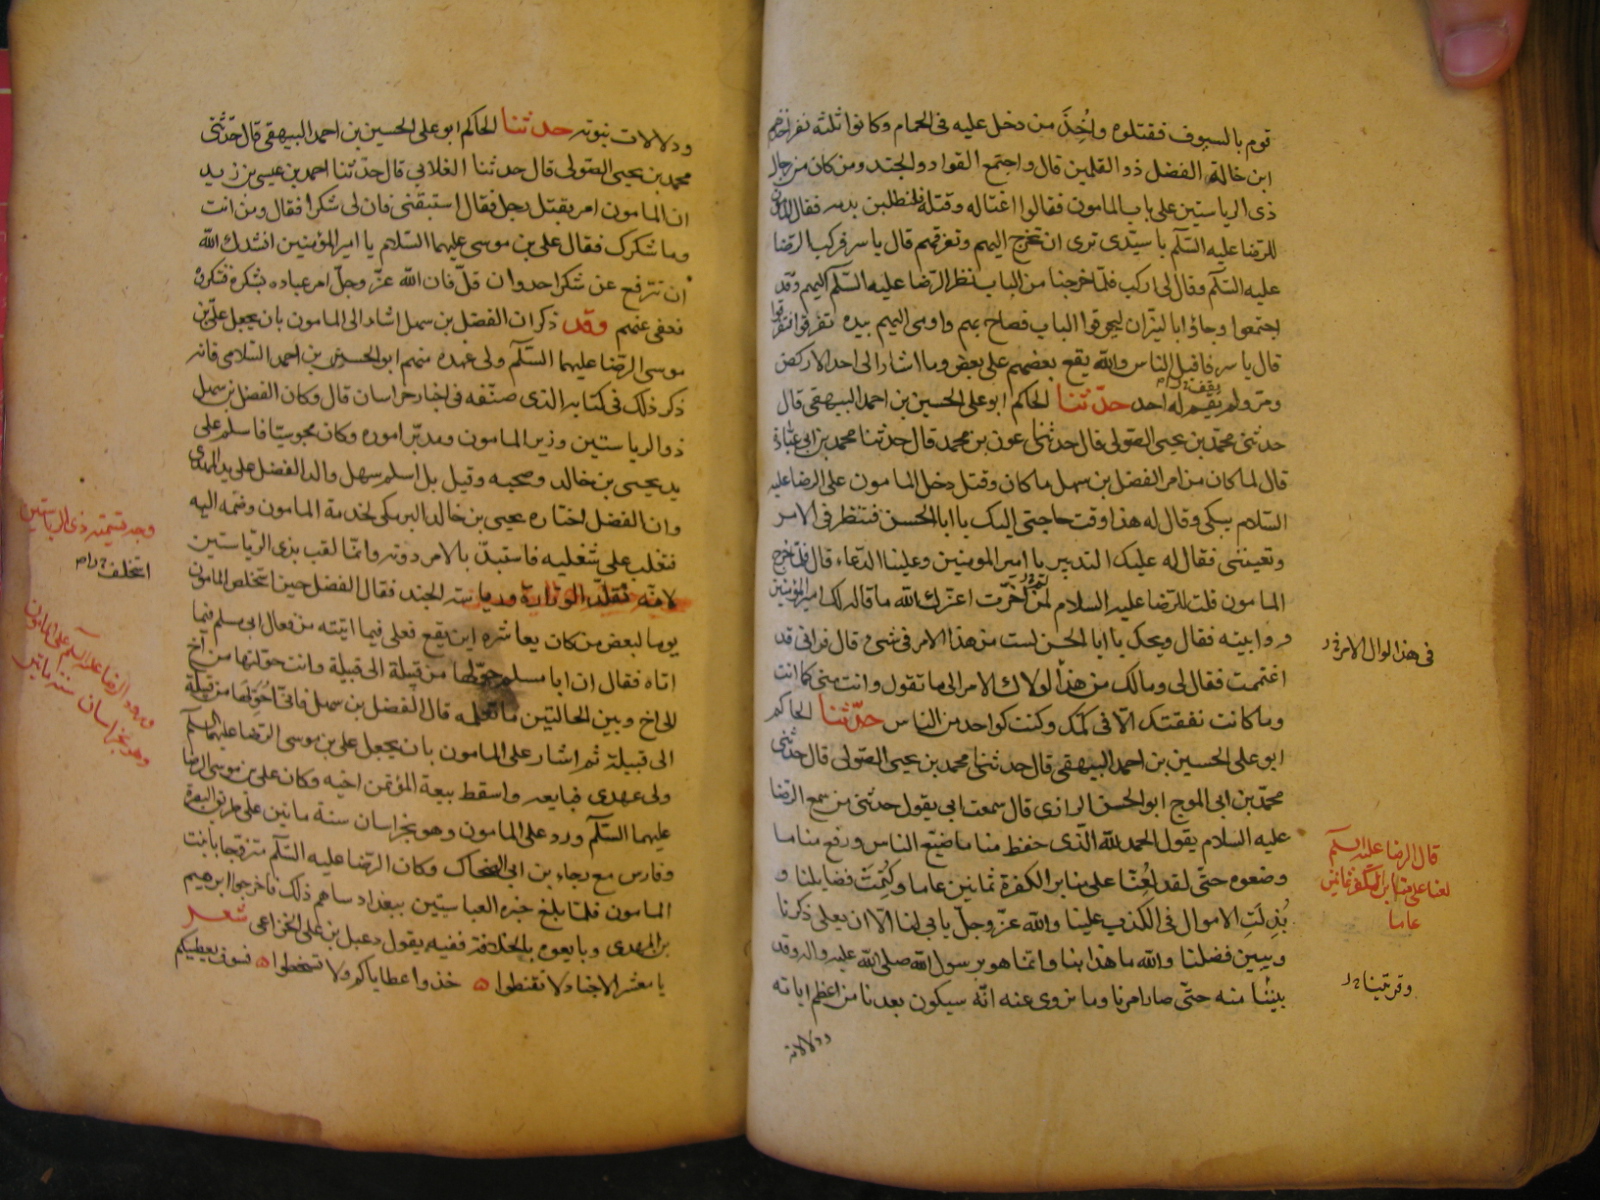 قوم بالسيوف فقتلوه واُخِذَ من دخل عليه فى الحمام وكانوا ثلثه نفر احدهم
ابن خالة الفضل ذو القلمين قال واجتمع القواد والجند ومن كان من رجال
ذى الرياستين على باب المامون فقالوا اغتاله وقتله فلنطلبن بدمه فقال المامون
للرضا عليه السّلم يا سيّدى ترى ان تخرج اليهم وتفرقهم قال ياسر فركب الرّضا
عليه السّلم وقال لى اركب فلمّا خرجنا من الباب نظر الرّضا عليه السّلم اليهم وقد
اجتمعوا وجاؤا بالنيران ليحرقوا الباب فصاح بهم واومى اليهم بيده تفرقوا فتفرقوا
قال ياسر فاقبل الناس والله يقع بعضهم على بعض وما اشار الى احد الا ركض
ومرّ ولم يقم له احد حدّثنا الحاكم ابو على الحسين بن احمد البيهقى قال
يقف
حدثنى محمّد بن يحيى الصّولى قال حدثنى عون بن محمد قال حدثنا محمد بن ابى عبّاد
قال لما كان من امر الفضل بن سهل ما كان وقتل دخل المامون على الرضا عليه
السّلام يبكى وقال له هذا وقت حاجتى اليك يا ابا الحسن فتنظر فى الامر
وتعيننى فقال له عليك التدبير يا امير المومنين وعلينا الدّعاء قال فلمّا خرج
المامون قلت للرّضا عليه السلام لم اخّرت اعزّك الله ما قاله لك امير المؤمنين
وابيته فقال ويحك يا ابا الحسن لست من هذا الامر فى شى وقال فرآنى قد
اغتممت فقال لى ومالك من هذا لو آل الامر الى ما تقول وانت منى كما انت
وما كانت نفقتك الّا فى كمّك وكنت كواحد من الناس حدّثنا الحاكم
ابو على الحسين بن احمد البيهقى قال حدثنا محمد بن يحيى الصّولى قال حدّثنى
محمّد بن ابى الموج ابو الحسن الرازى قال سمعت ابى يقول حدثنى من سمع الرّضا
عليه السلام يقول الحمد لله الّذى حفظ منا ما ضيّع الناس ورفع منا ما
وضعوه حتّى لقد لعِنّا على منابر الكفرة ثمانين عاما وكُتِمَت فضايلنا و
بُذِلَتِ الاموال فى الكذب علينا والله عزّ وجلّ يابى لنا الّا ان يعلى ذكرنا
ويبين فضلنا والله ما هذا بنا وانما هو برسول الله صلى الله عليه واله وقد
بيننا منه حتّى صار امرنا وما نروى عنه انّه سيكون بعدنا من اعظم اياته
ودلالات
فى هذا لو آل الامر
قال الرضا عليه السلم
لعنا على منابر الكفرة ثمانين
عاما
وقرتبنا
ودلالات نبوته حدثنا الحاكم ابو على الحسين بن احمد البيهقى قال حدّثنى
محمد بن يحيى الصّولى قال حدثنا الغلابى قال حدّثنا احمد بن عيسى بن زيد
ان المامون امر بقتل رجل فقال استبقنى فان لى شكرا فقال ومن انت
وما شكرك فقال على بن موسى عليهما السّلام يا امير المؤمنين انشدك الله
ان تترفع عن شكر احد وان قلّ فان الله عزّ وجلّ امر عباده بشكره فشكروه
فعفى عنهم وقد ذكر ان الفضل بن سهل اشار الى المامون بان يجعل على بن
موسى الرضا عليهما السّلم ولى عهده منهم ابو الحسين بن احمد السّلامى فانه
ذكر ذلك فى كتابه الذى صنّفه فى اخبار خراسان قال وكان الفضل بن سهل
ذو الرياستين وزير المامون ومدبّر اموره وكان مجوسيّا فاسلم على
يد يحيى بن خالد وصحبه وقيل بل اسلم سهل والد الفضل على يد المهدى
وان الفضل اختاره يحيى بن خالد البرمكى لخدمة المامون وضمه اليه
فتغلب على شغليه فاستبدّ بالامر دونه وانّما لقب بذى الرياستين
لانّه تُقلّد الوزارة ورياسة الجند فقال الفضل حين استخلص المامون
يوما لبعض من كان يعاشره اين يقع فعلى فيما اتيته من فعال ابى مسلم فيما
اتاه فقال ان ابا مسلم حوّلها من قبيلة الى قبيلة وانت حوّلتها من اخ
الى اخ وبين الحالتين ما تعلمه قال الفضل بن سهل فانّى اُحَوّلها من قبيلة
الى قبيلة ثم اشار على المامون بان يجعل على بن موسى الرضا عليهما السّلم
ولى عهدى فبايعه واسقط بيعة المؤتمن اخيه وكان على بن موسى الرضا
عليهما السّلم ورد على المامون وهو بخراسان سنة ماتين على طريق البصرة
وفارس مع رجاء بن ابى الضحاك وكان الرّضا عليه السّلم متزوّجا بابنت
المامون فلمّا بلغ خبره العباسيّين ببغداد ساهم ذلك فاخرجوا ابرهيم
بن المهدى وبايعوه بالخلافة ففيه يقول دعبل بن على الخزاعى شعر
يا معشر الاجناد لا تقنطوا ه خذوا عطاياكم ولا تسخطوا ه فسوف يعطيكم
وجه تسميته ذى الرياستين
استخلف
ورود الرضا عليه السلم على المامون
وهو بخراسان سنة ماتين